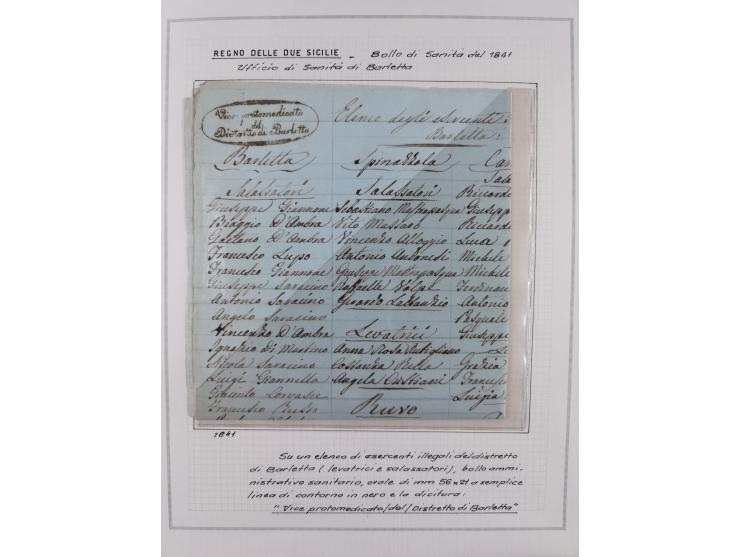 REGNO DELLE DUE SICILIE - Bollo di Sanità del 1841
Ufficio di Sanità di Barletta
Vice protomedicato
del
Distretto di Barletta
Elenco degli esercenti
Barletta:
Barletta Spinazzola Can
Salassatori Salassatori
Giuseppe Giannone Sebastiano Mastropasqua Giuseppe
Biaggio D'Ambra Vito Massaro Riccardo
Gaetano D'Ambra Vincenzo Alloggio Luca
Francesco Lupo Antonio Michele
Francesco Giannone Giuseppe Mastropasqua Michele
Giuseppe Saracino Raffaele Volpe Ferdinan
Antonio Saracino Gerardo Antonio
Angelo Saracino Pasquale
Vincenzo D'Ambra Levatrici Giuseppe
Ignazio di Martino Anna Rosa
Nicola Saracino Costanza Bello Grazia
Luigi Giannella Angela Francesc
Giacinto Luigia
Francesco Ruvo
1841
Su un elenco di esercenti illegali del distretto
di Barletta (levatrici e salassatori), bollo ammi-
nistrativo sanitario, ovale di mm 56x21 a semplice
linea di contorno in nero e la dicitura:
"Vice protomedicato/del/Distretto di Barletta"